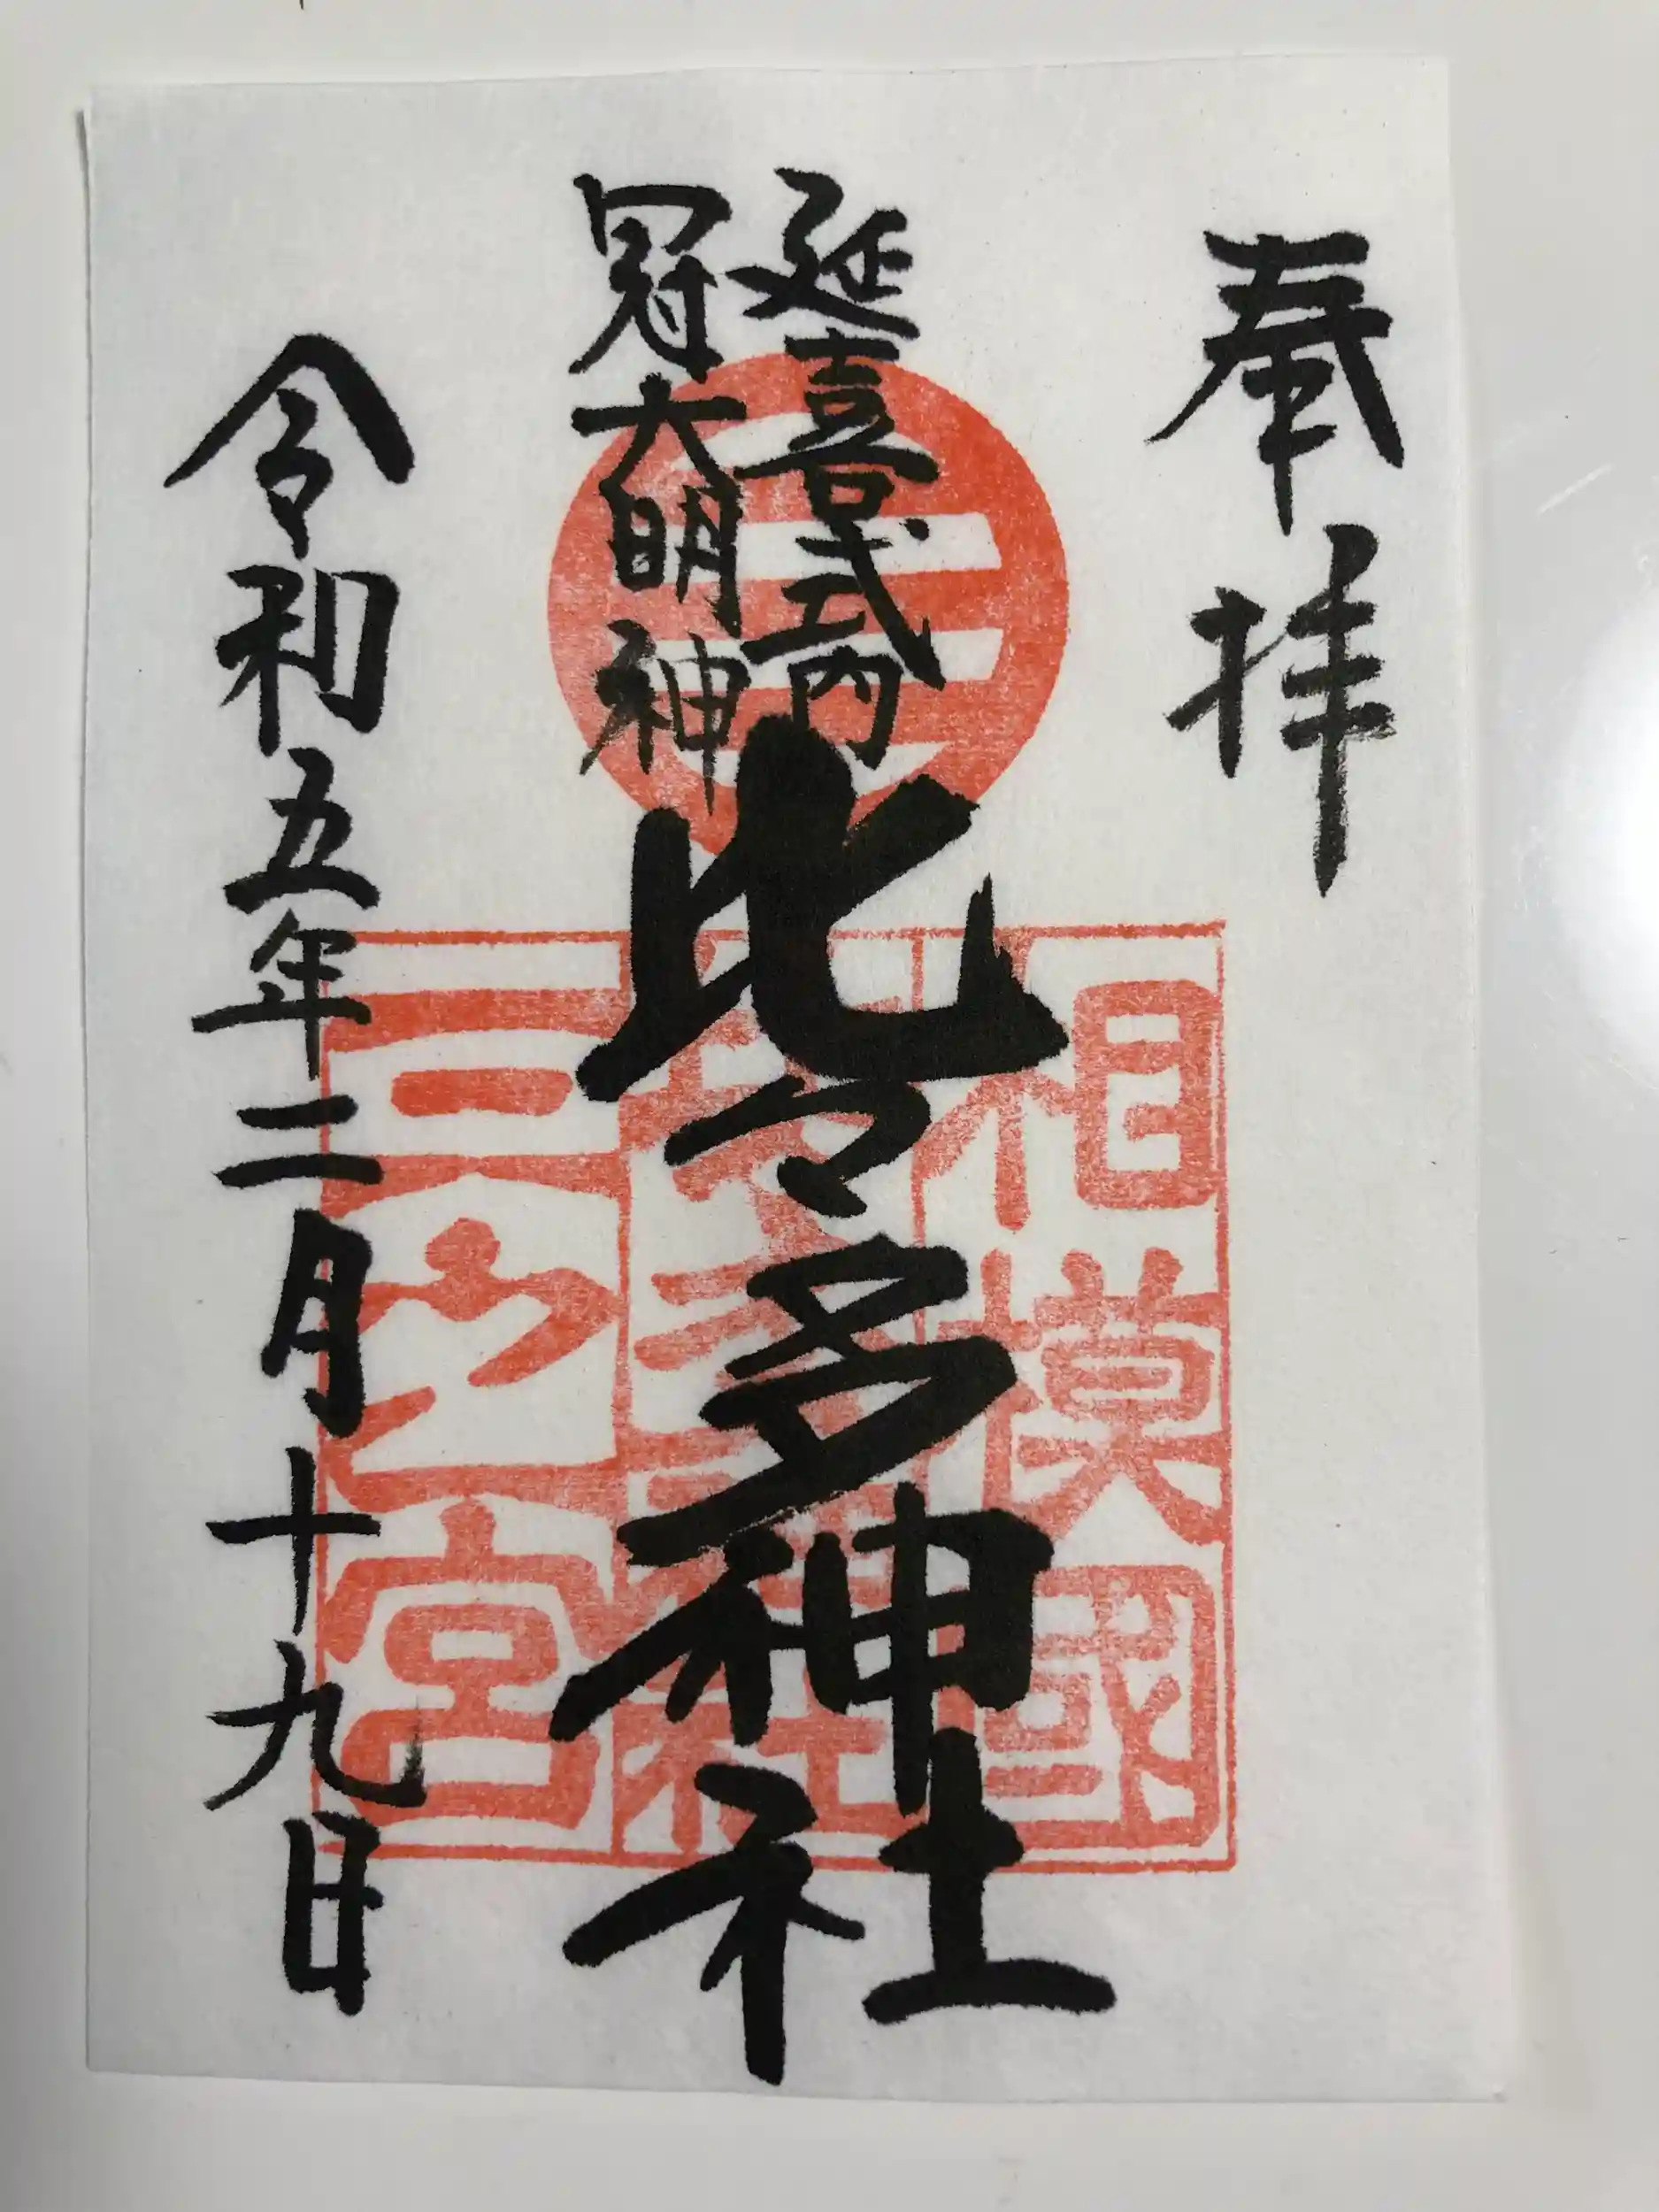 奉拝
延喜式内
冠大明神
比々多神社
相模國
三之宮
令和五年二月十九日